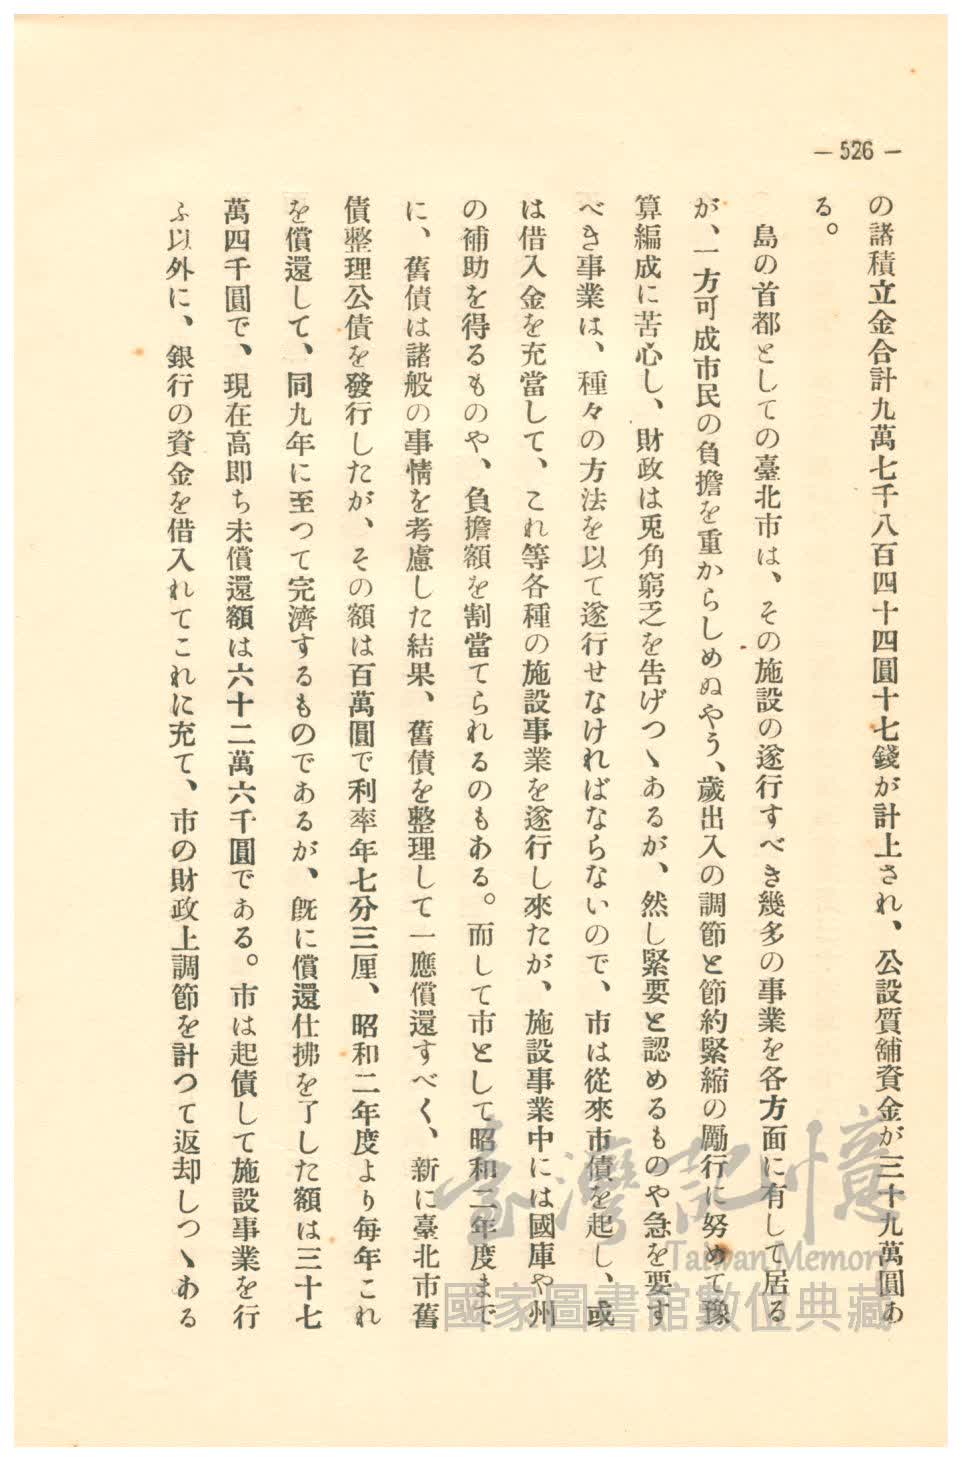 — 526 —
の諸積立金合計九萬七千八百四十四圓十七錢が計上され、公設質舖資金が三十九萬圓あ
る。
島の首都としての臺北市は、その施設の遂行すべき幾多の事業を各方面に有して居る
が、一方可成市民の負擔を重からしめぬやう、歲出入の調節と節約緊縮の勵行に努めて豫
算編成に苦心し、財政は兎角窮乏を告げつゝあるが、然し緊要と認めるものや急を要す
べき事業は、種々の方法を以て遂行せなければならないので、市は從來市債を起し、或
は借入金を充當して、これ等各種の施設事業を遂行し來たが、施設事業中には國庫や州
の補助を得るものや、負擔額を割當てられるのもある。而して市として昭和二年度まで
に、舊債は諸般の事情を考慮した結果、舊債を整理して一應償還すべく、新に臺北市舊
債整理公債を發行したが、その額は百萬圓で利率年七分三厘、昭和二年度より每年これ
を償還して、同九年に至つて完濟するものであるが、既に償還仕拂を了した額は三十七
萬四千圓で、現在高卽ち未償還額は六十二萬六千圓である。市は起債して施設事業を行
ふ以外に、銀行の資金を借入れてこれに充て、市の財政上調節を計つて返却しつゝある
臺灣記憶
Taiwan Memory
國家圖書館數位典藏